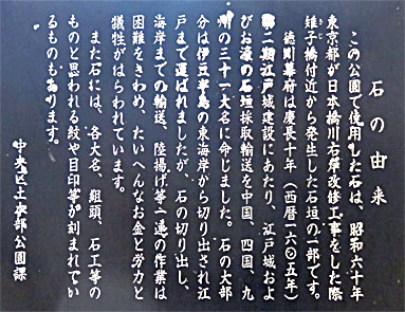 石の由来
この公園で使用した石は、昭和六十年
東京都が日本橋川右岸改修工事をした際
雉子橋付近から発生した石垣の一部です。
徳川幕府は慶長十年（西暦一六〇五年）
第二期江戸城建設にあたり、江戸城およ
びお濠の石垣採取輸送を中国、四国、九
州の三十一大名に命じました。石の大部
分は伊豆半島の東海岸から切り出され江
戸まで運ばれましたが、石の切り出し、
海岸までの輸送、陸揚げ等一連の作業は
困難をきわめ、たいへんなお金と労力と
犠牲がはらわれています。
また石には、各大名、組頭、石工等の
ものと思われる紋や目印等が刻まれてい
るものもあります。
中央区土木部公園課